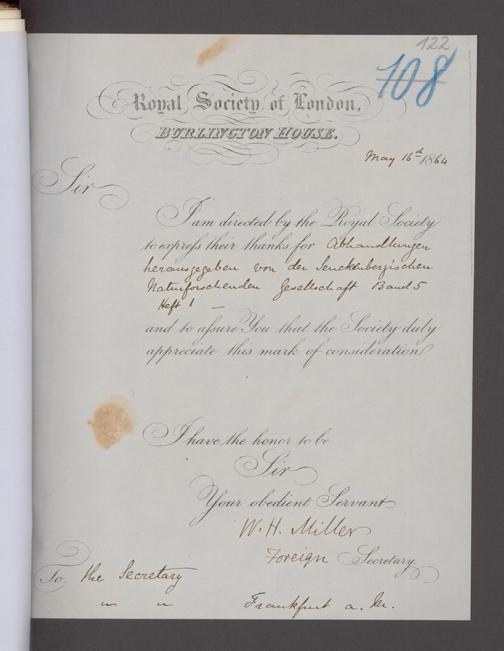 122
108
Royal Society of London,
BURLINGTON HOUSE.
May 16th 1864
Sir
I am directed by the Royal Society
to express their thanks for Abhandlungen
herausgegeben von der Senckenbergischen
Naturforschenden Gesellschaft Band 5
Heft 1 —
and to assure You that the Society duly
appreciate this mark of consideration
I have the honor to be
Sir
Your obedient Servant
W. H. Miller
Foreign Secretary.
To. the Secretary
" " Frankfurt a. M.